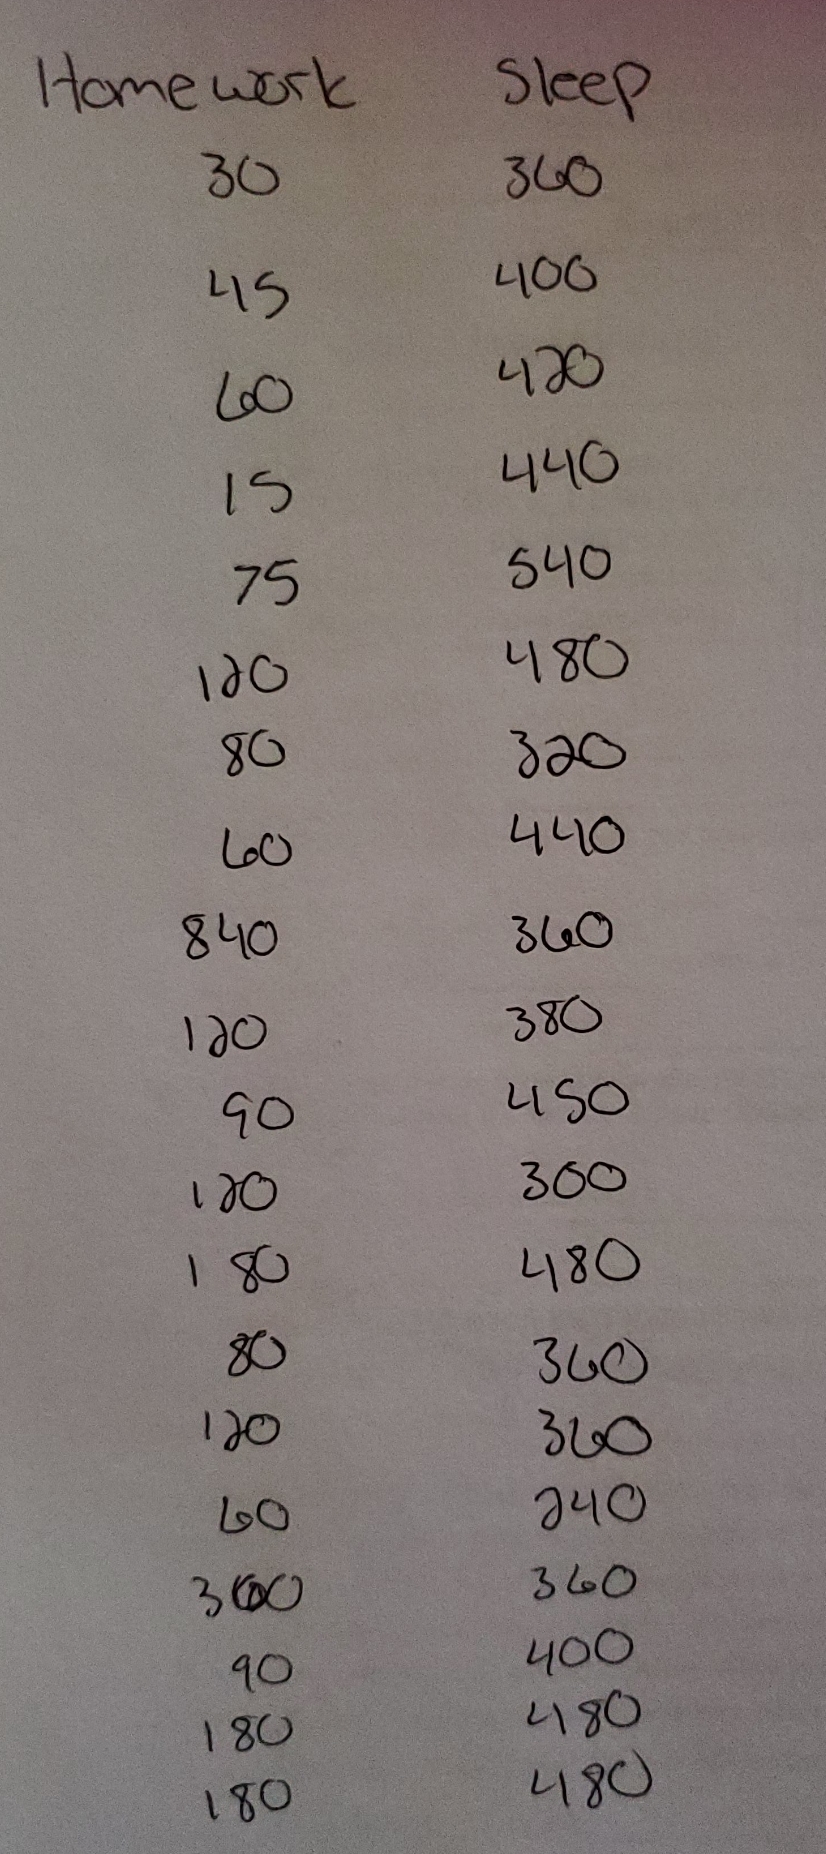 Homework Sleep
30 360
45 400
60 420
15 440
75 540
120 480
80 320
60 440
840 360
120 380
90 450
120 300
180 480
80 360
120 360
60 240
360
90 400
180 480
180 480